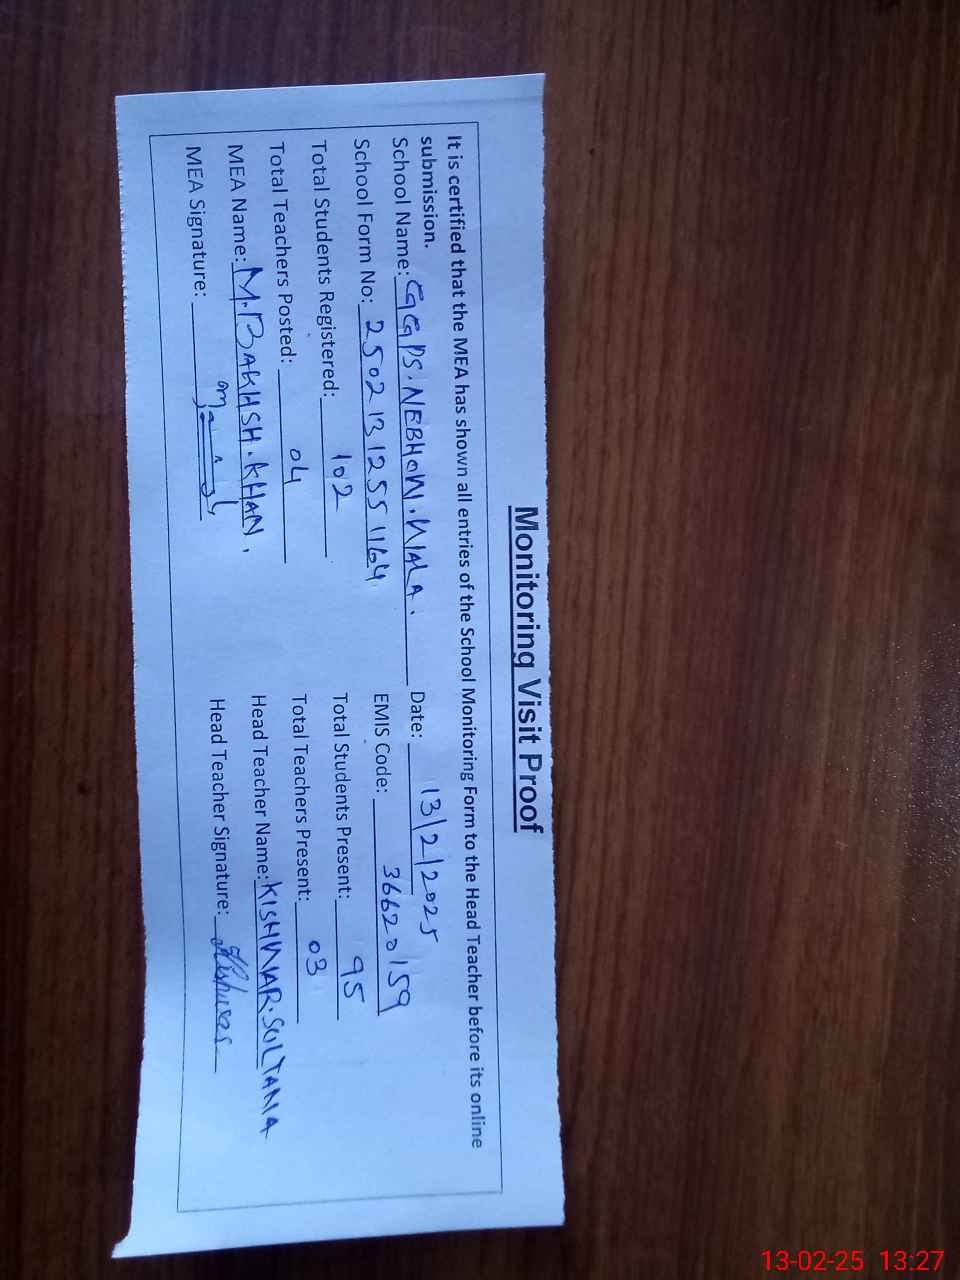 Monitoring Visit Proof
It is certified that the MEA has shown all entries of the School Monitoring Form to the Head Teacher before its online
submission.
School Name: GGPS. NEBHOWI. WALA. Date: 13/2/2025
School Form No: 25021312551164 EMIS Code: 36620159
Total Students Registered: 102 Total Students Present: 95
Total Teachers Posted: 04 Total Teachers Present: 03
MEA Name: M. BAKHSH. KHAN. Head Teacher Name: KISHWAR. SULTANA
MEA Signature: Head Teacher Signature:
13-02-25 13:27